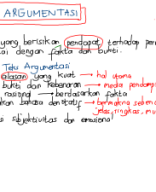 ARGUMENTASI
yang berisikan pendapat terhadap
sai dengan fakta dan bukti.
Teks Argumentasi
alasan yang kuat → hal utama
bukti dan kebenaran → media
rasional → berdasarkan fakta
bahasa denotatif → bermakna
jelas, ringkas,
subjektivitas dan emosional